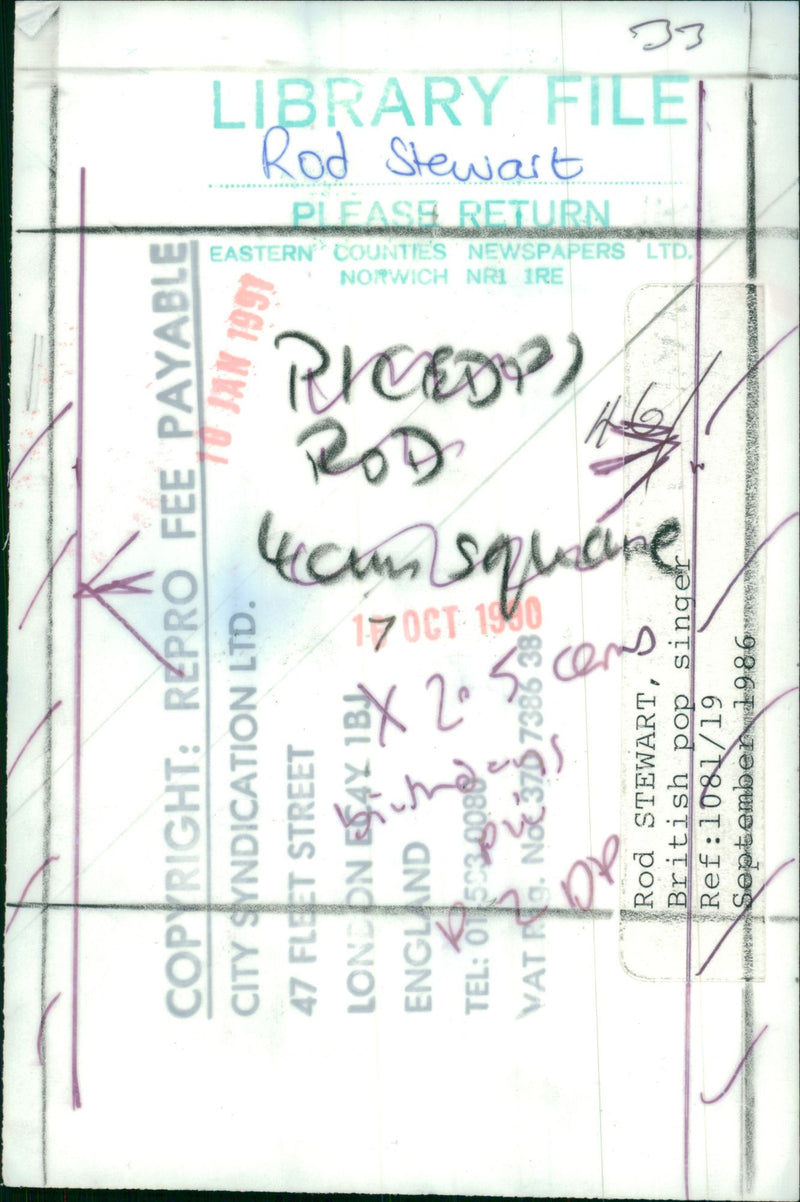 33
LIBRARY FILE
Rod Stewart
PLEASE RETURN
EASTERN COUNTIES NEWSPAPERS LTD.
NORWICH NR1 1RE
10 JAN 1991
ROD
4cm square
16 OCT 1990
7
X 2.5 cms
2 DP
46
COPYRIGHT: REPRO FEE PAYABLE
CITY SYNDICATION LTD.
47 FLEET STREET
LONDON EC4Y 1BJ
ENGLAND
TEL: 01-583 0080
VAT Reg. No. 370 7386 38
Rod STEWART,
British pop singer
Ref:1081/19
September 1986